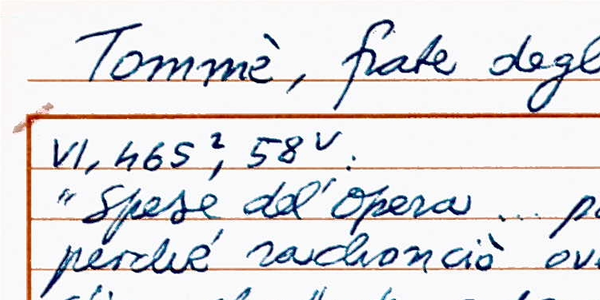 Tommè, frate degl
VI, 465², 58v.
"Spese del'Opera ... p
perché rachonciò ov